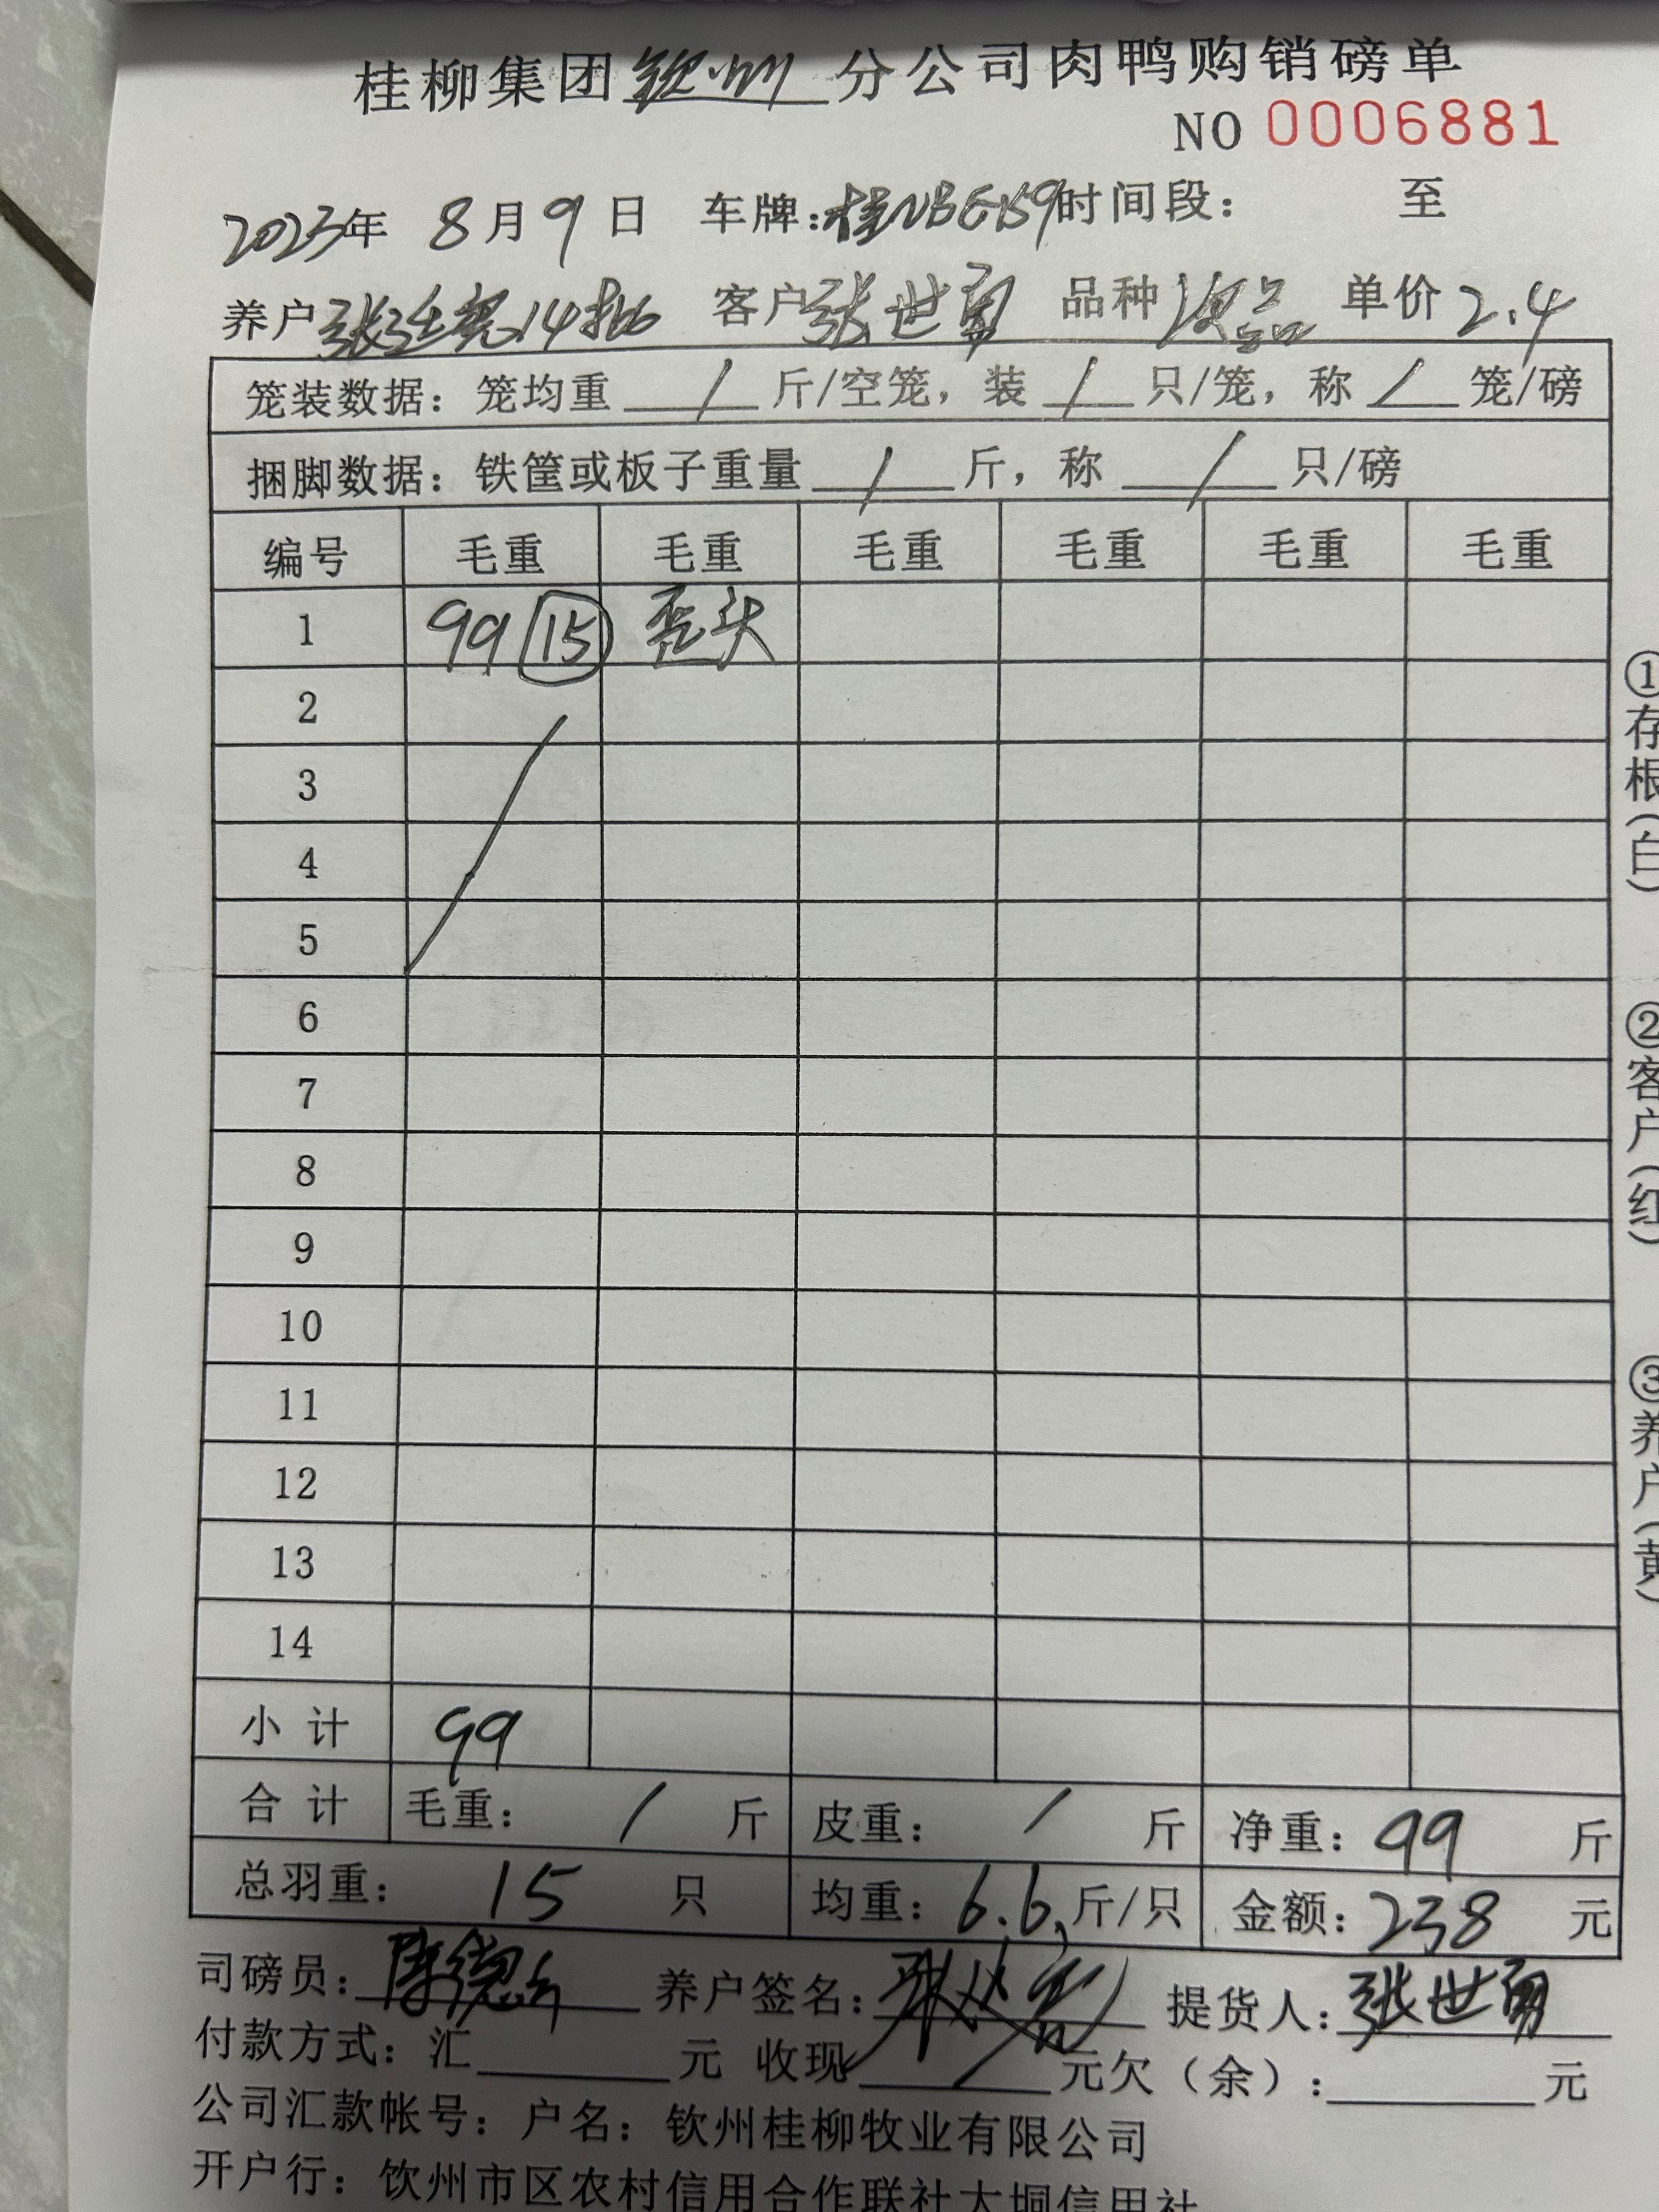 桂柳集团钦州分公司肉鸭购销磅单
NO 0006881
2023年 8月9日 车牌:桂NBE159时间段: 至
养户张 14批 客户张世勇 品种次品 单价2.4
笼装数据: 笼均重 / 斤/空笼, 装 / 只/笼, 称 / 笼/磅
捆脚数据: 铁筐或板子重量 / 斤, 称 / 只/磅
编号 毛重 毛重 毛重 毛重 毛重 毛重
1 99 15 歪头
2
3
4
5
6
7
8
9
10
11
12
13
14
小计 99
合计 毛重: / 斤 皮重: / 斤 净重: 99 斤
总羽重: 15 只 均重: 6.6 斤/只 金额: 238 元
司磅员: 陈德 养户签名: 张 提货人: 张世勇
付款方式: 汇 元 收现 元欠(余): 元
公司汇款帐号: 户名: 钦州桂柳牧业有限公司
开户行: 钦州市区农村信用合作联社大垌信用社
①存根(白)
②客户(红)
③养户(黄)